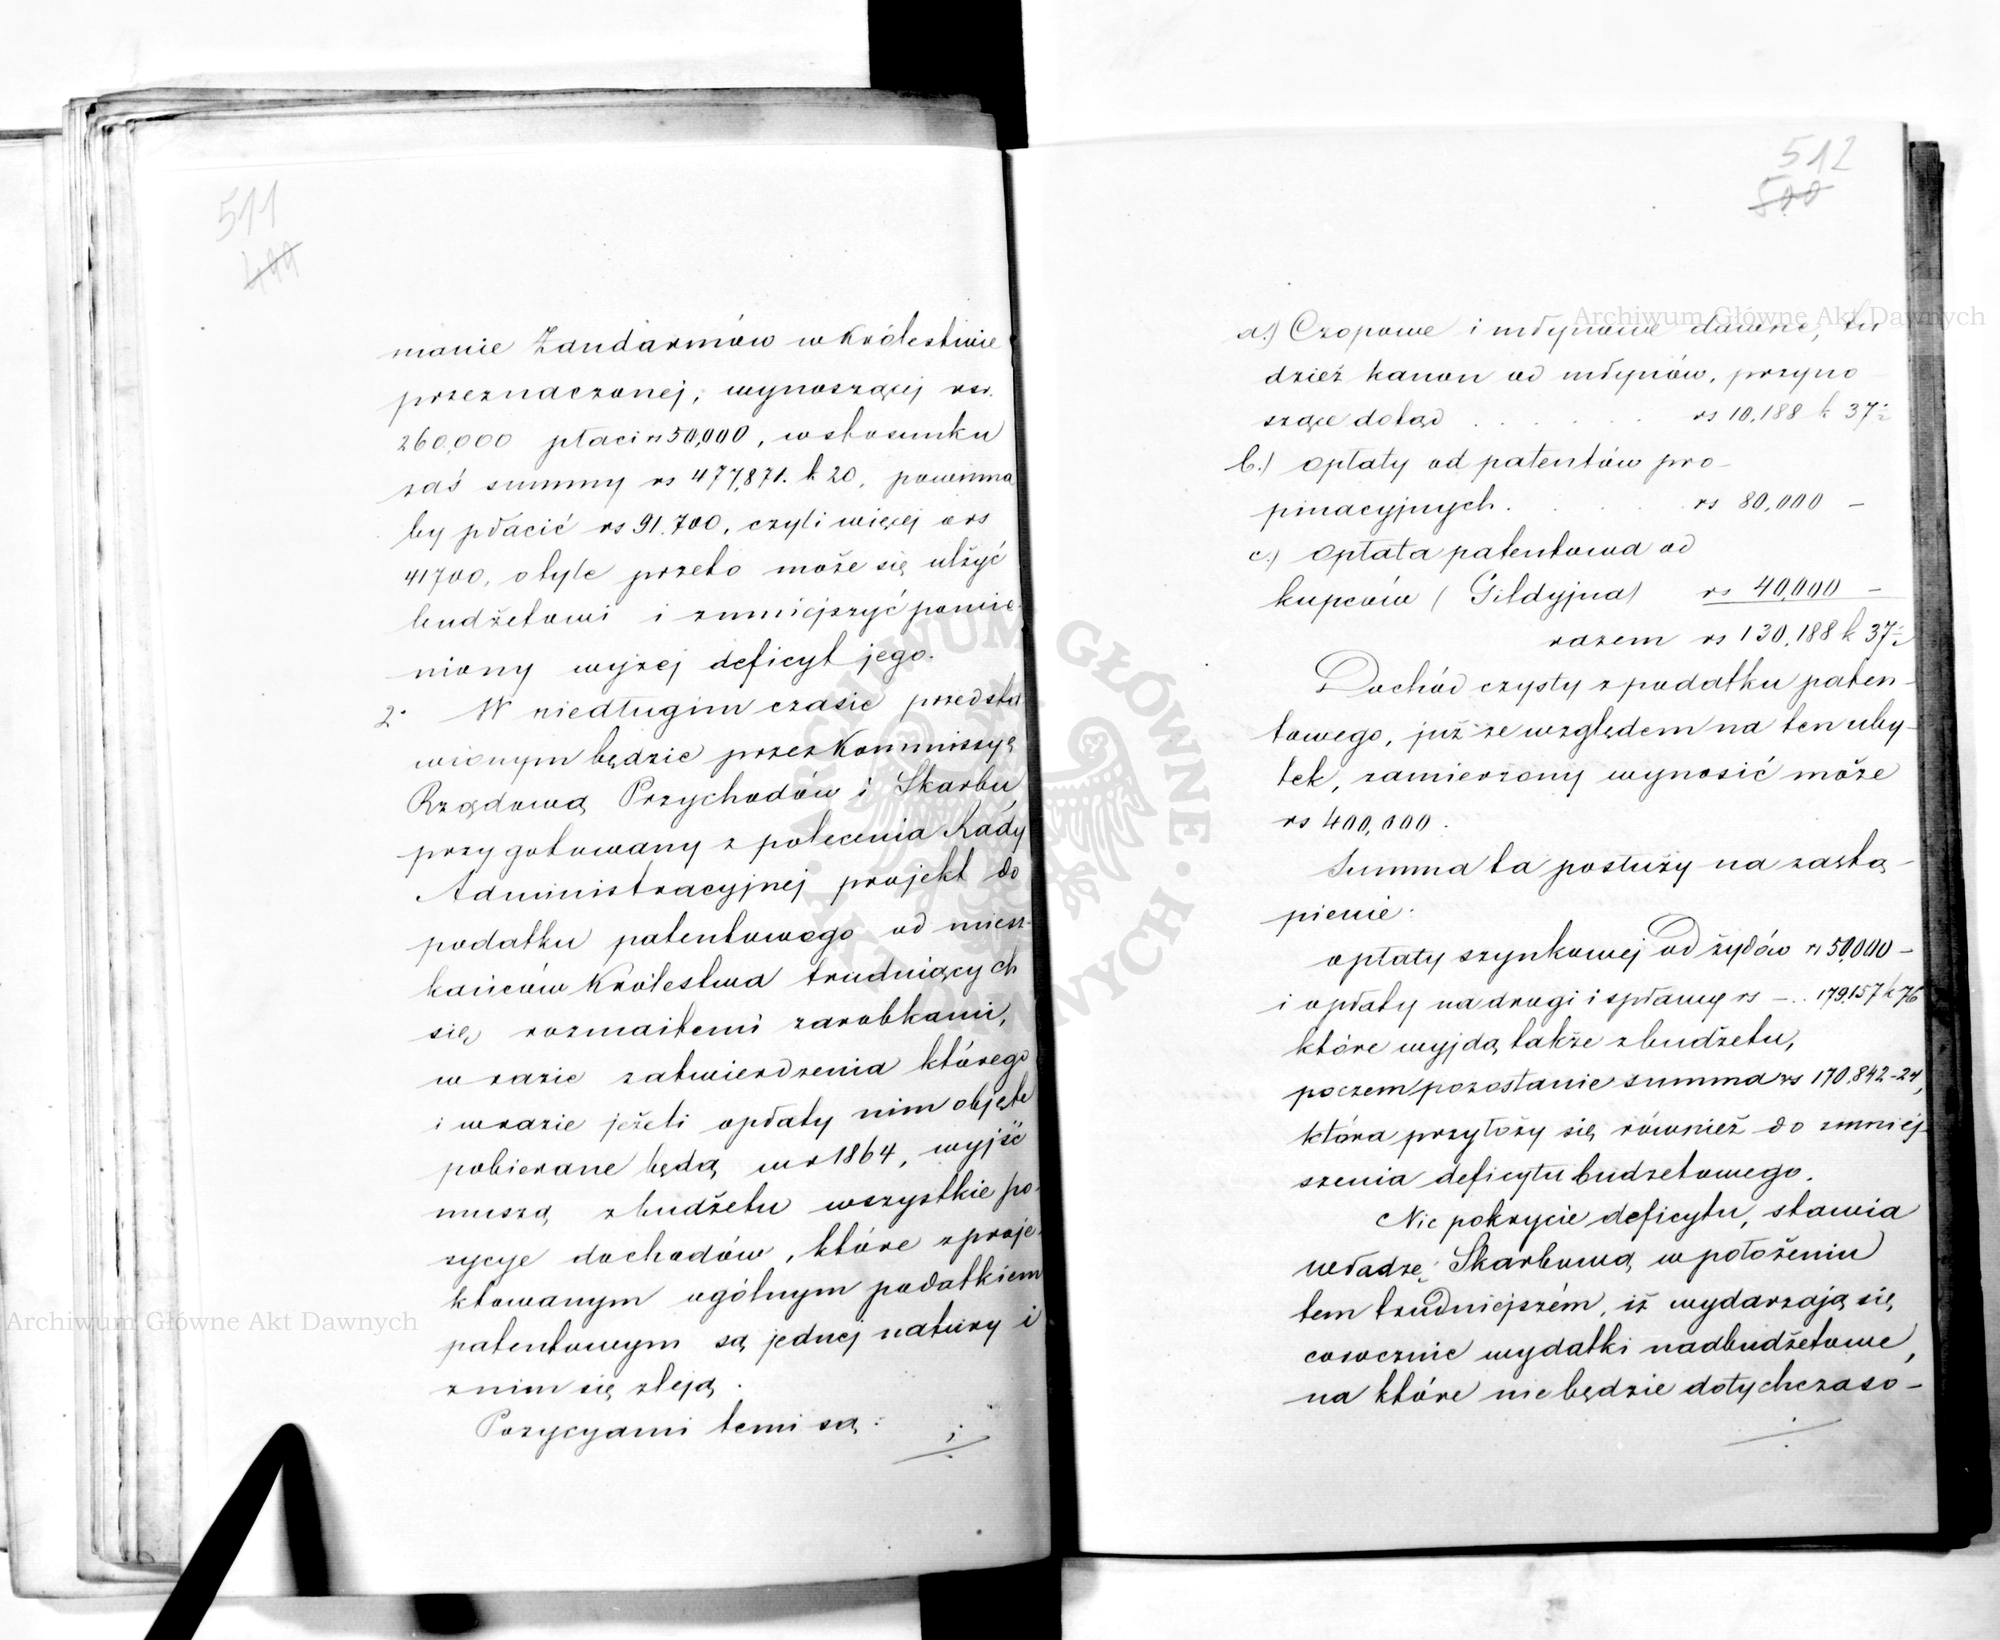 511
499
manie Żandarmów w Królestwie
przeznaczonej, wynoszącej rsr.
260,000 płaci rs 50,000, w stosunku
zaś summy rs 477,871. k 20, powinna
by płacić rs 91.700, czyli więcej o rs
41700, o tyle przeto może się ulżyć
budżetowi i zmniejszyć pomie-
niony wyżej deficyt jego.
2° W niedługim czasie przedsta
wionym będzie przez Kommissyą
Rządową Przychodów i Skarbu,
przygotowany z polecenia Rady
Administracyjnej projekt do
podatku patentowego od miesz-
kańców Królestwa trudniących
się rozmaitemi zarobkami,
w razie zatwierdzenia którego
i w razie jeżeli opłaty nim objęte
pobierane będą w r 1864, wyjść
muszą z budżetu wszystkie po-
zycye dochodów, które z proje-
ktowanym ogólnym podatkiem
patentowym są jednej natury i
z nim się zleją.
Pozycyami temi są:
512
500
a.) Czopowe i młynowe dawne, tu
dzież kanon od młynów, przyno
szące dotąd . . . . . rs 10,188 k 37½
b.) opłaty od patentów pro-
pinacyjnych. . . . . rs 80,000 –
c.) opłata patentowa od
kupców (Gildyjna) rs 40,000 –
razem rs 130,188 k 37½
Dochód czysty z podatku paten-
towego, już ze względem na ten uby-
tek, zamierzony wynosić może
rs 400,000.
Summa ta posłuży na zastą-
pienie:
opłaty szynkowej od żydów rs 50,000 –
i opłaty na drogi i spławy rs – . . 179,157 k 76
które wyjdą także z budżetu,
poczem pozostanie summa rs 170,842-24,
która przyłoży się również do zmniej-
szenia deficytu budżetowego.
Nie pokrycie deficytu, stawia
władzę Skarbową w położeniu
tem trudniejszém, iż wydarzają się
corocznie wydatki nadbudżetowe,
na które nie będzie dotychczaso-
Archiwum Główne Akt Dawnych
Archiwum Główne Akt Dawnych
ARCHIWUM GŁÓWNE AKT DAWNYCH